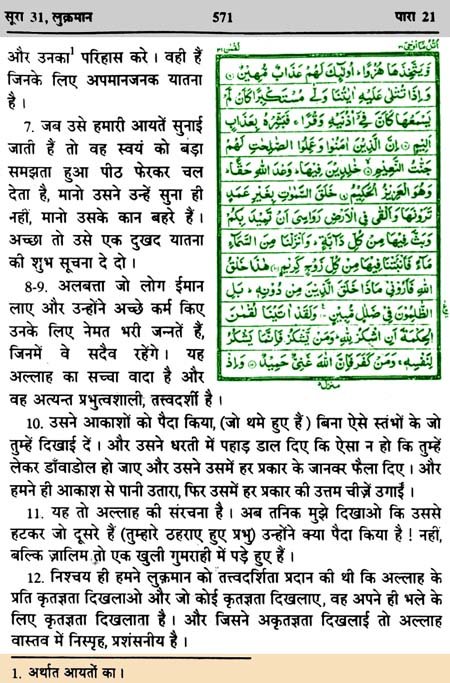 सूरा 31, लुक़मान 571 पारा 21
और उनका¹ परिहास करे। वही हैं
जिनके लिए अपमानजनक यातना
है।
7. जब उसे हमारी आयतें सुनाई
जाती हैं तो वह स्वयं को बड़ा
समझता हुआ पीठ फेरकर चल
देता है, मानो उसने उन्हें सुना ही
नहीं, मानो उसके कान बहरे हैं।
अच्छा तो उसे एक दुखद यातना
की शुभ सूचना दे दो।
8-9. अलबत्ता जो लोग ईमान
लाए और उन्होंने अच्छे कर्म किए
उनके लिए नेमत भरी जन्नतें हैं,
जिनमें वे सदैव रहेंगे। यह
अल्लाह का सच्चा वादा है और
वह अत्यन्त प्रभुत्वशाली, तत्त्वदर्शी है।
وَيَتَّخِذَهَا هُزُوًا، اُولٰٓئِكَ لَهُمْ عَذَابٌ مُّهِيْنٌ
وَاِذَا تُتْلٰى عَلَيْهِ اٰيٰتُنَا وَلّٰى مُسْتَكْبِرًا كَاَنْ لَّمْ
يَسْمَعْهَا كَاَنَّ فِيْٓ اُذُنَيْهِ وَقْرًا، فَبَشِّرْهُ بِعَذَابٍ
اَلِيْمٍ اِنَّ الَّذِيْنَ اٰمَنُوْا وَعَمِلُوا الصّٰلِحٰتِ لَهُمْ
جَنّٰتُ النَّعِيْمِ خٰلِدِيْنَ فِيْهَا، وَعْدَ اللهِ حَقًّا،
وَهُوَ الْعَزِيْزُ الْحَكِيْمُ خَلَقَ السَّمٰوٰتِ بِغَيْرِ عَمَدٍ
تَرَوْنَهَا وَاَلْقٰى فِي الْاَرْضِ رَوَاسِيَ اَنْ تَمِيْدَ بِكُمْ
وَبَثَّ فِيْهَا مِنْ كُلِّ دَآبَّةٍ، وَاَنْزَلْنَا مِنَ السَّمَآءِ
مَآءً فَاَنْۢبَتْنَا فِيْهَا مِنْ كُلِّ زَوْجٍ كَرِيْمٍ هٰذَا خَلْقُ
اللهِ فَاَرُوْنِيْ مَاذَا خَلَقَ الَّذِيْنَ مِنْ دُوْنِهٖ، بَلِ
الظّٰلِمُوْنَ فِيْ ضَلٰلٍ مُّبِيْنٍ وَلَقَدْ اٰتَيْنَا لُقْمٰنَ
الْحِكْمَةَ اَنِ اشْكُرْ لِلّٰهِ، وَمَنْ يَّشْكُرْ فَاِنَّمَا يَشْكُرُ
لِنَفْسِهٖ، وَمَنْ كَفَرَ فَاِنَّ اللهَ غَنِيٌّ حَمِيْدٌ وَاِذْ
10. उसने आकाशों को पैदा किया, (जो थमे हुए हैं) बिना ऐसे स्तंभों के जो
तुम्हें दिखाई दें। और उसने धरती में पहाड़ डाल दिए कि ऐसा न हो कि तुम्हें
लेकर डाँवाडोल हो जाए और उसने उसमें हर प्रकार के जानवर फैला दिए। और
हमने ही आकाश से पानी उतारा, फिर उसमें हर प्रकार की उत्तम चीज़ें उगाईं।
11. यह तो अल्लाह की संरचना है। अब तनिक मुझे दिखाओ कि उससे
हटकर जो दूसरे हैं (तुम्हारे ठहराए हुए प्रभु) उन्होंने क्या पैदा किया है! नहीं,
बल्कि ज़ालिम तो एक खुली गुमराही में पड़े हुए हैं।
12. निश्चय ही हमने लुक़मान को तत्त्वदर्शिता प्रदान की थी कि अल्लाह के
प्रति कृतज्ञता दिखलाओ और जो कोई कृतज्ञता दिखलाए, वह अपने ही भले के
लिए कृतज्ञता दिखलाता है। और जिसने अकृतज्ञता दिखलाई तो अल्लाह
वास्तव में निस्पृह, प्रशंसनीय है।
1. अर्थात आयतों का।